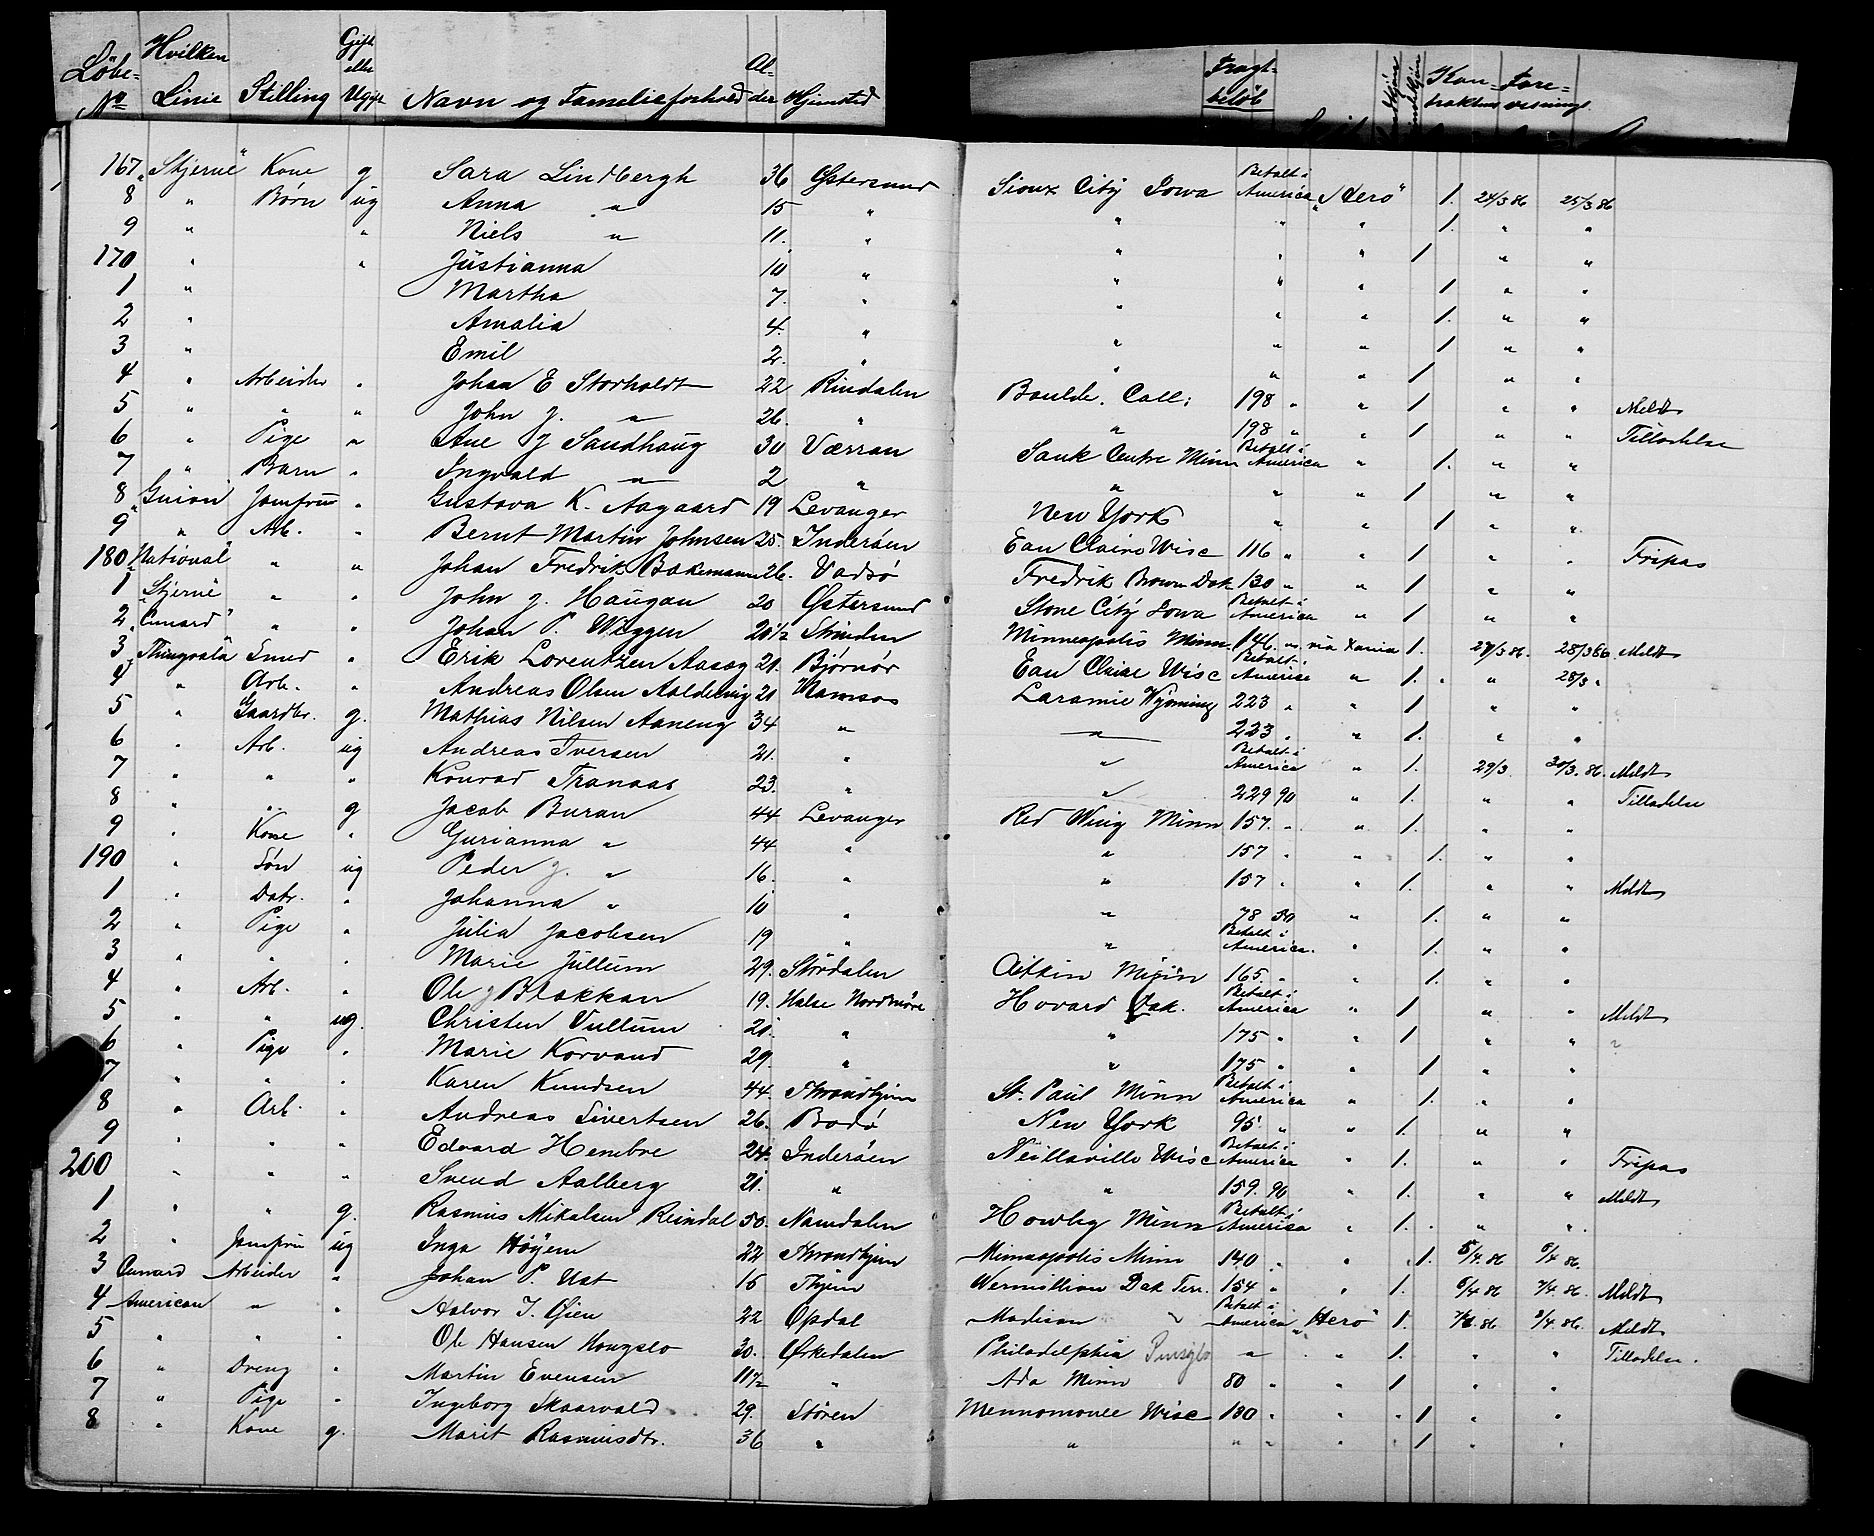 Löbe- No Hvilken Linie Stilling Gift eller Ugift Navn og Familieforhold Al- der Hjemsted Fragt- beløb Kon- trakten Fore- visning
167 "Stjerne" Kone g Sara Lindbergh 36 Østersund Sioux City Iowa Betalt i America "Hero" 1. 24/3 86 25/3 86
8 " Børn ug Anna " 15 " " " " 1. " "
9 " " Niels " 11. " " " " 1 " "
170 " " Justianna 10 " " " " 1 " "
1 " Martha 7. " " " 1. " "
2 " Amalia 4. " " " " 1 " "
3 " Emil 2. " " " " 1 " "
4 " Arbeider " Johan E Storholdt 22 Rindalen Boulde. Call; 198 " " 1 " " Meldt
5 " " " John J. " 26. " " 198 " " 1 " " Tilladelse
6 " Pige " Ane J Sandhaug 30 Værran Sauk Centre Minn Betalt i America " 1. " "
7 " Barn " Ingvald " 2 " " " " 1 " "
8 "Guion" Jomfru " Gustava K. Aagaard 19 Levanger New York " " 1 " "
9 " Arb. " Bernt Martin Johnsen 25. Inderöen Eau Claire Wisc 116 " " 1 " " Fripas
180 "National" " " Johan Fredrik Bakemann 26. Vadsö Fredrik Brown Dak 130 " " 1 " "
1 "Stjerne" " " John J. Haugan 20 Østersund Stone City Iowa Betalt i America " 1 " "
2 "Cunard" " " Johan P. Wiggen 20 1/2 Strinden Minneapolis Minn. 146. " via Xania 1. 27/3 86. 28/3 86. Meldt
3 Thingvalla Smed " Erik Lorentzen Aasag 21. Bjørnør Eau Claire Wisc Betalt i America " 1. " 28/3 "
4 " Arb. " Andreas Olsen Aaldervig 21 Namsos Laramie Wyoming 223 " " 1 " "
5 " Gaardbr. g. Mathias Nilsen Aaneng 34 " " 223 " " 1. " "
6 " Arb. ug Andreas Iversen 21. " " Betalt i America " 1. 29/3 30/3. 86. Meldt
7 " " " Konrad Tranaas 23. " " 229 90 " 1. " " Tilladelse
8 " " g Jacob Buran 44 Levanger Red Wing Minn 157. " " 1. " "
9 " Kone " Gurianna " 44 " " 157 " " 1. " "
190 " Søn ug Peder J. " 16. " " 157 " " 1. " " Meldt
1 " Datr. " Johanna " 10 " " 78 50 " 1. " "
2 " Pige " Julia Jacobsen 19 " " Betalt i America. " 1. " "
3 " " " Marie Jullum 29. Stördalen Aitkin Minn 165. " " 1. " "
4 " Arb. " Ole J Blakkan 19. Halse Nordmöre Hovard Dak. Betalt i America " 1 " " Meldt
5 " " ug. Christen Vullum 21. " " 175 " " 1 " " "
6 " Pige " Marie Korvand 29. " " 175 " " 1 " "
7 " " " Karen Knudsen 44. Throndhjem St. Paul Minn Betalt i America " 1. " "
8 " Arb. " Andreas Sivertsen 26. Bodø New York 95. " " 1. " "
9 " " " Edvard Hembre 24. Inderöen Neillsville Wisc Betalt i America " 1. " " Fripas
200 " " " Svend Aalberg 21. " " 159. 90 " 1. " " Meldt
1 " " g. Rasmus Mikalsen Reindal 50. Namdalen Howley Minn Betalt i America " 1. " "
2 " Jomfru ug Inga Höyem 22 Throndhjem Minneapolis Minn 140 " " 1. 5/4 86 6/4 86.
3 Cunard Arbeider " Johan P. Ust 16 Thjem Wermillion Dak Terr. 154 " " 1. 6/4 86 7/4 86. Meldt
4 American " " Halvor I. Øien 22 Opdal Madison " Betalt i America "Hero" 1. 7/4 86 /4. 86. Meldt
5 " " " Ole Hansen Hougslo 30. Ørkedalen Philadelphia " " 1. " " Tilladelse.
6 " Dreng " Martin Evensen 11 1/2 " Ada Minn 80 " " 1 " "
7 " Pige " Ingeborg Skaarvold 29. Stören Mennomonee Wisc 180 " " 1 " "
8 " Kone g. Marit Rasmusdtr. 36 " " " " " 1 " "